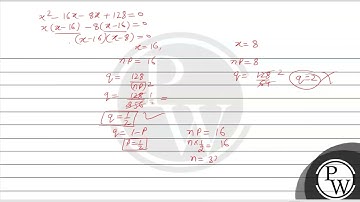 x² - 16x - 8x + 128 = 0
x(x-16) - 8(x-16) = 0
(x-16)(x-8) = 0
x = 16,
x = 8
np = 16
np = 8
q = 128
q = 128 2
(np)²
64
q = 2 ×
q = 128 1
256 2
q = 1/2
q = 1-P
P = 1/2
np = 16
n × 1/2 = 16
n = 32
PW